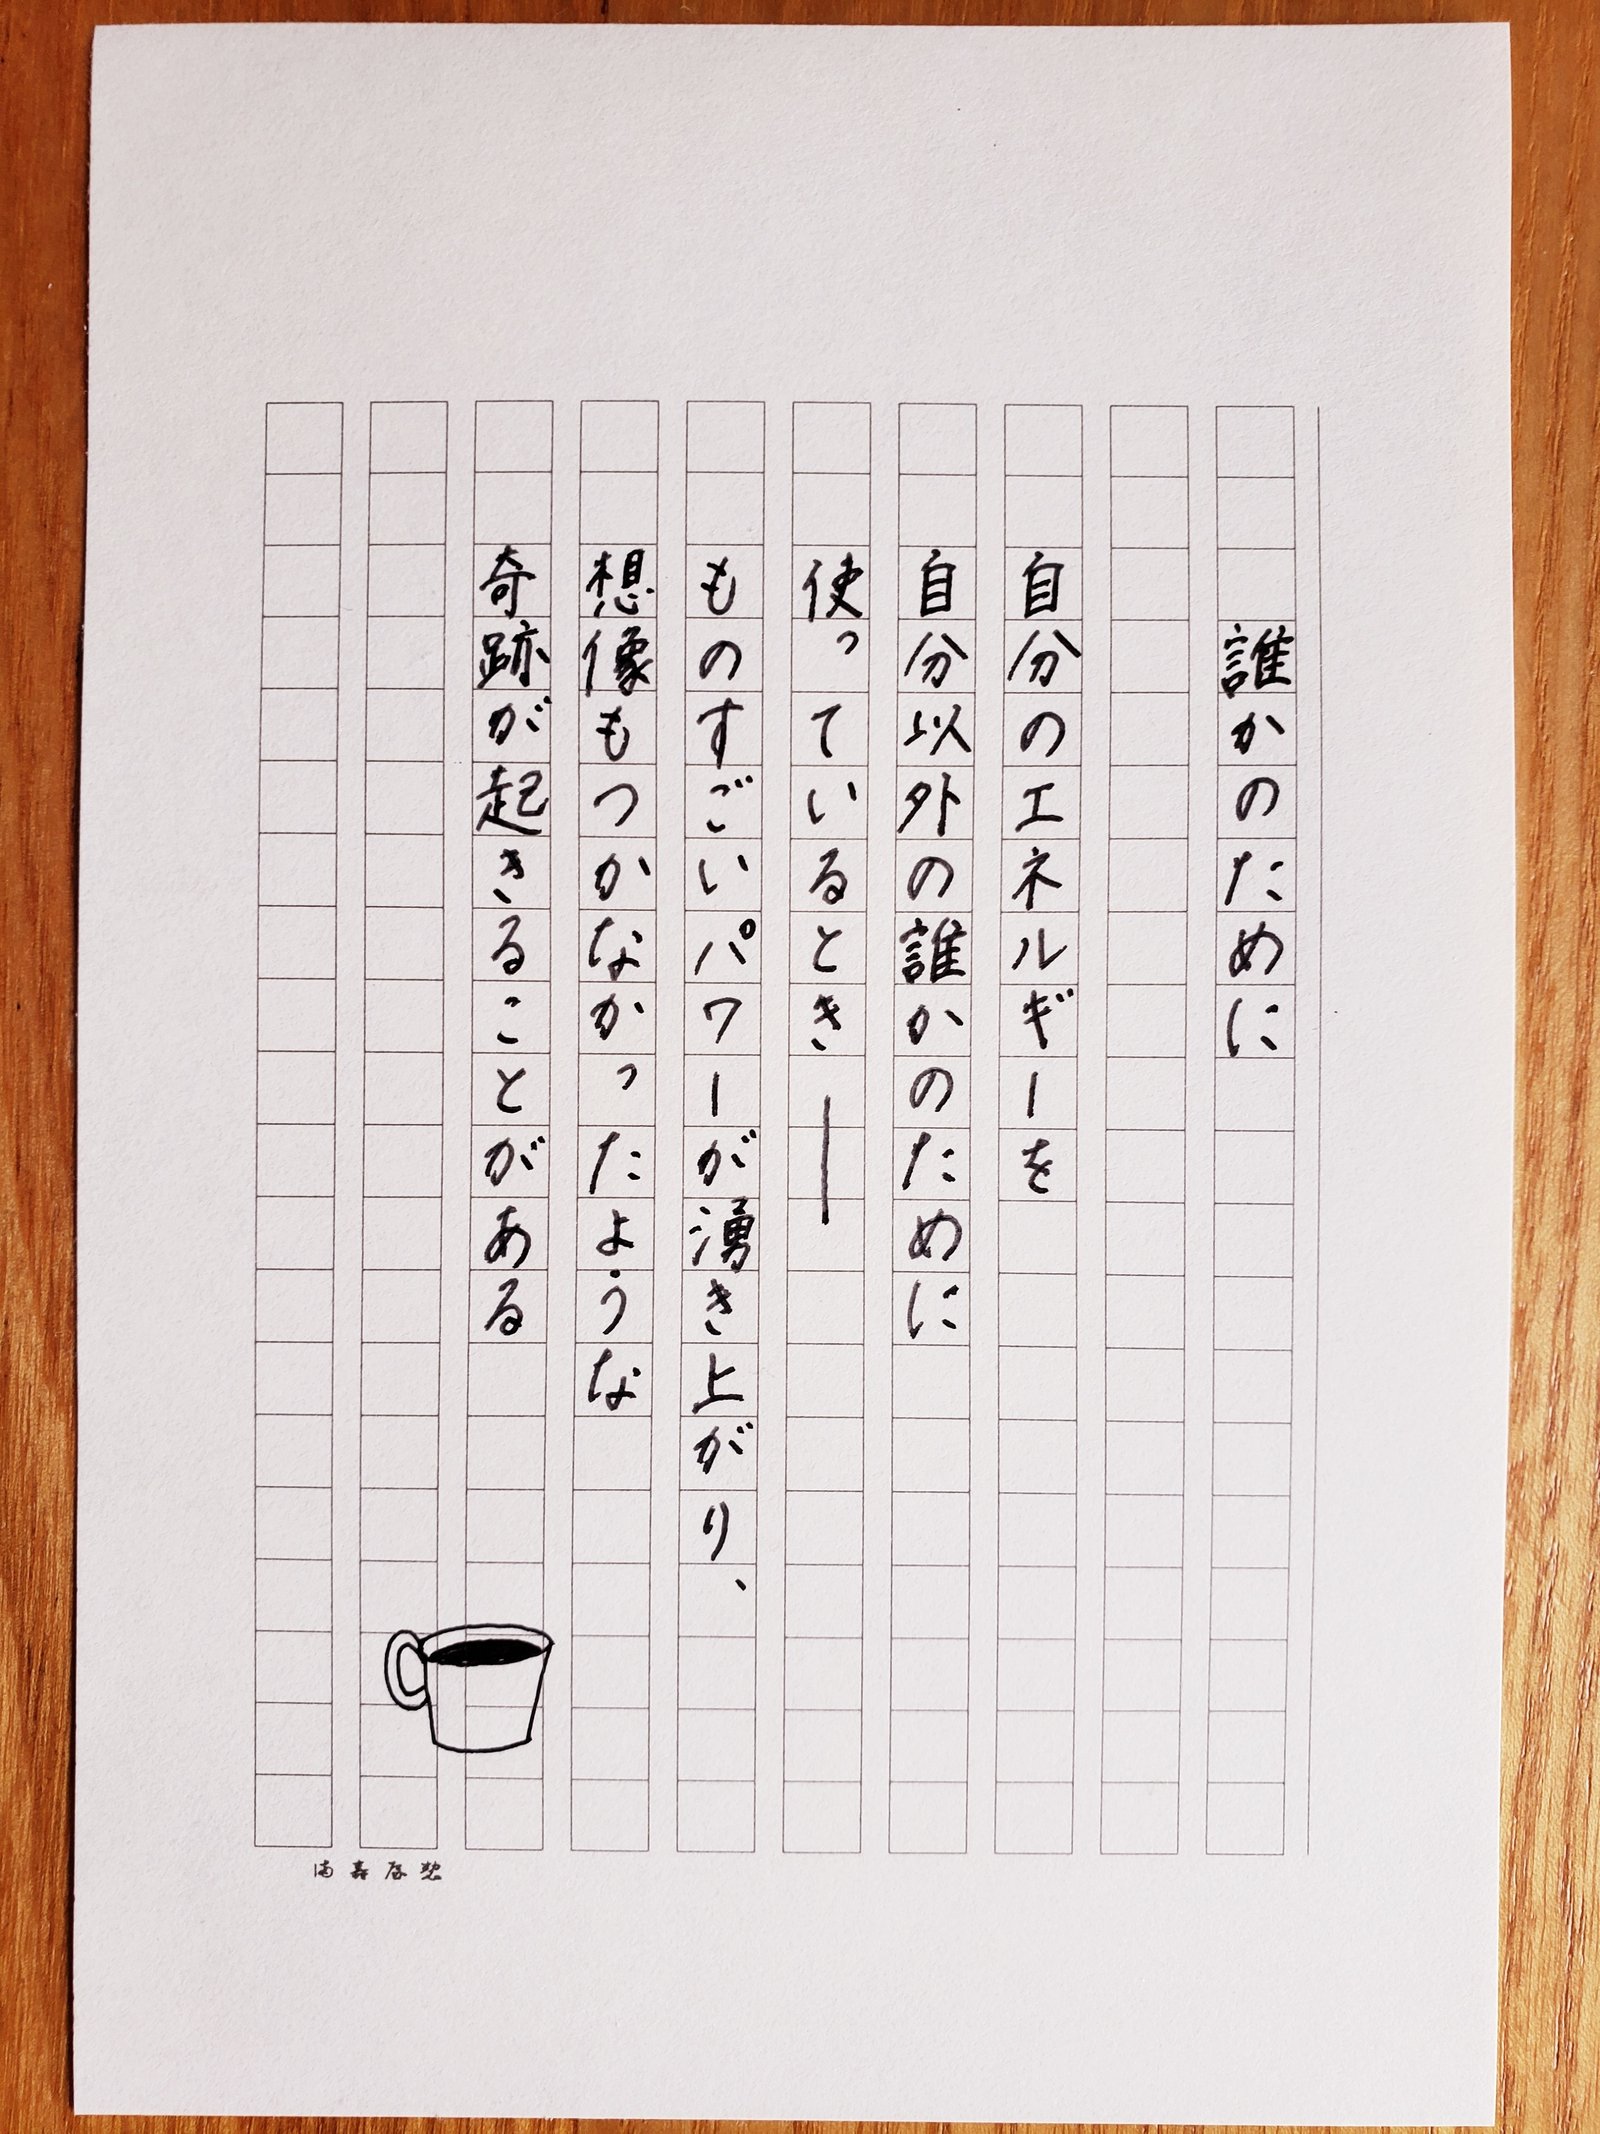 誰かのために
自分のエネルギーを
自分以外の誰かのために
使っているとき――
ものすごいパワーが湧き上がり、
想像もつかなかったような
奇跡が起きることがある